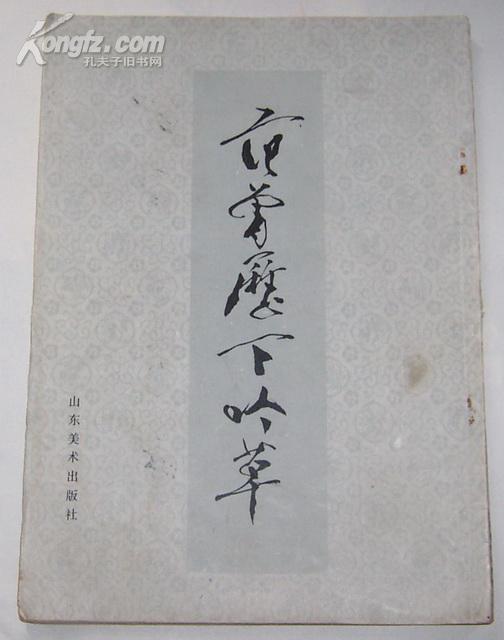 Kongfz.com
孔夫子旧书网
范曾歷下吟草
山东美术出版社